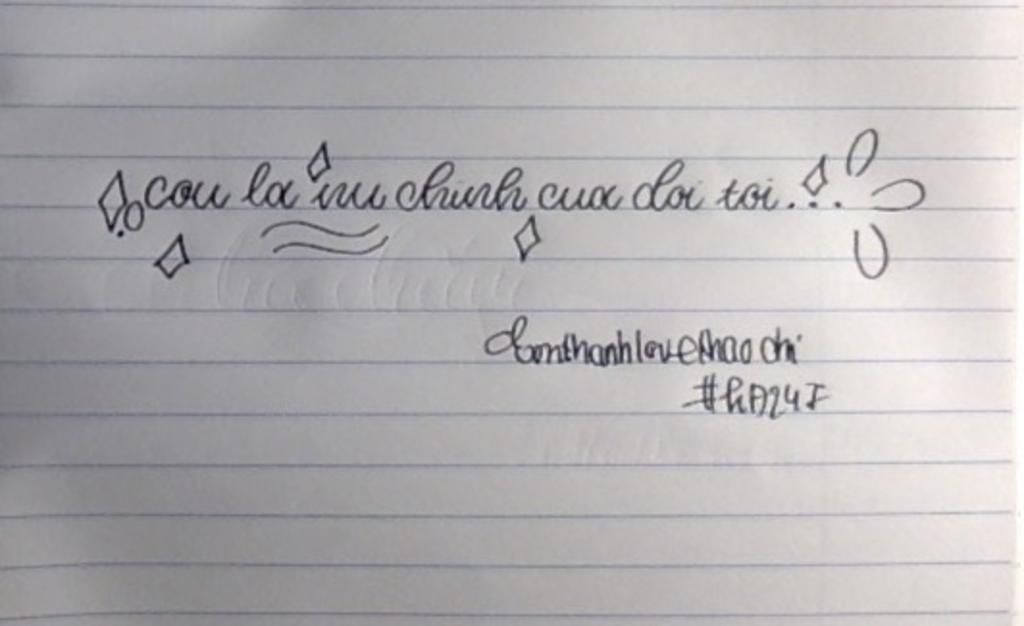 cau la nu chinh cua doi toi...
tonthanhlovethaochi
#hA24I